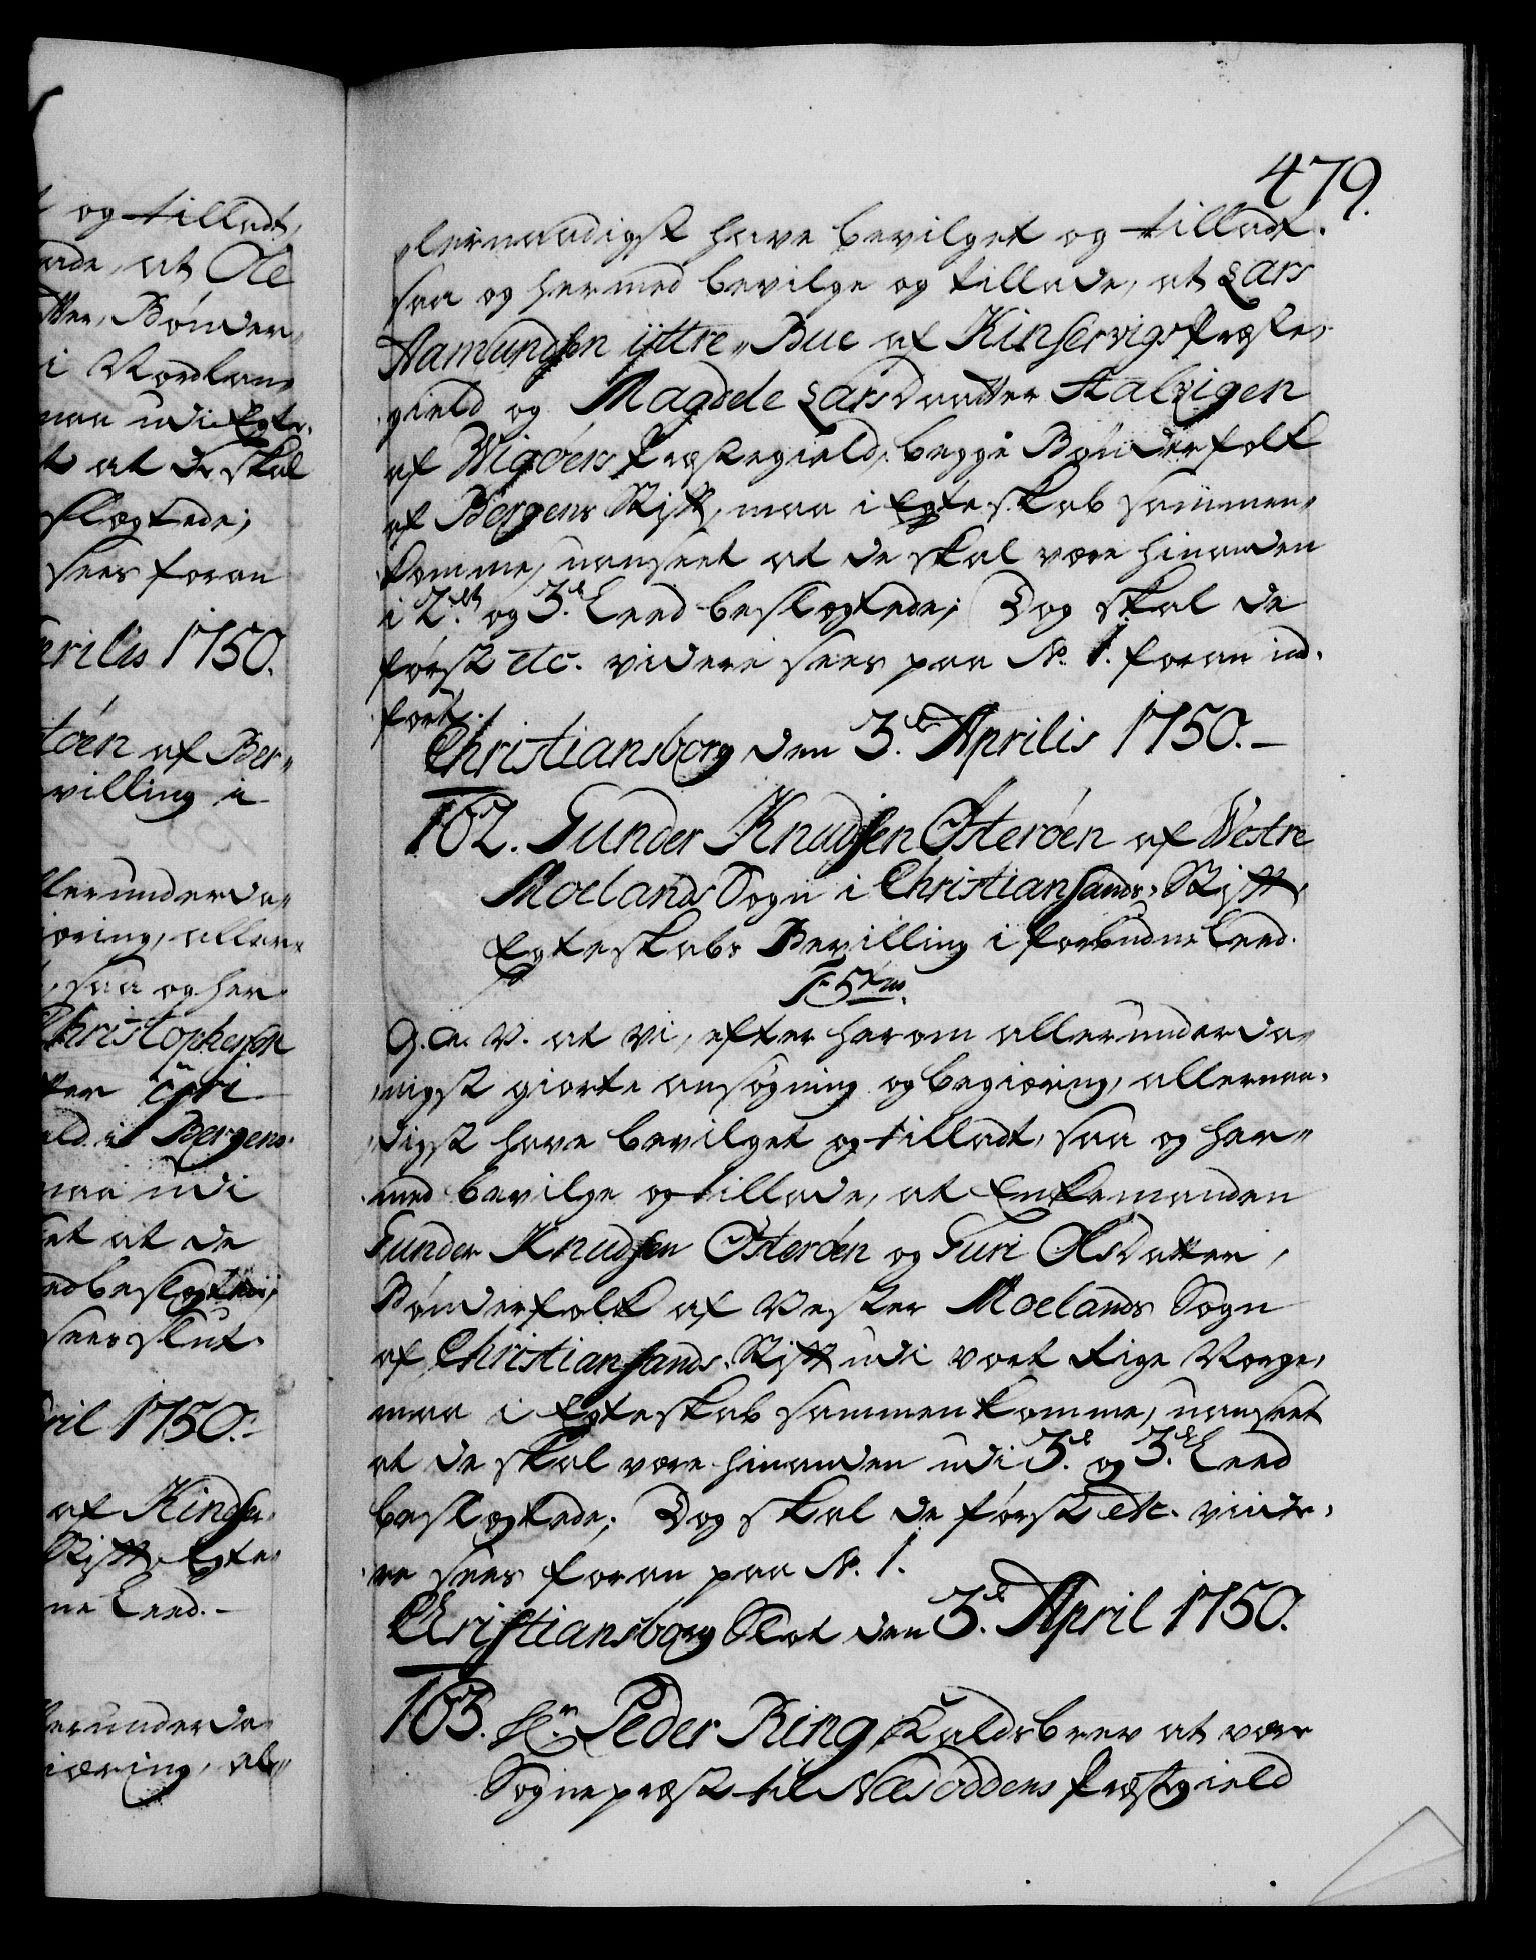 og tilladt,
at Ole
Bønder,
i Nordland
maa udi Egte-
at de skal
slægtede;
sees foran
Aprilis 1750.
tøen af Ber-
villing i
allerunderda-
giæring, aller-
saa og her-
Christophersen
i Bergens
maa udi
at de
Leed beslegtede;
sees slut.
April 1750.-
af Kinser-
Stift Egte-
ne Leed.-
allerunderda-
giæring, al-
479.
lernaadigst have bevilget og tilladt.
saa og hermed bevilge og tillade, at Lars
Aamundsøn ÿttre-Bue af Kinservigs Præste-
gield og Magdele Larsdaatter Stalvigen
af Wigøers Præstegield, begge Bønderfolk
af Bergens Stift, maa i Egteskab sammen-
komme, uanseet at de skal være hinanden
i 2det og 3de Leed beslegtede; Dog skal de
først etc. videre sees paa No. 1. foran ind-
fört.
Christiansborg den 3de Aprilis 1750.-
102. Gunder Knudsen Østerøen af Westre
Moelands Sogn i Christiansands Stift,
Egteskabs Bevilling i forbudne Leed.
F5tus.
G. a. V. at Vi, efter herom allerunderda-
nigst giorte ansøgning og begiæring, allernaa-
digst have bevilget og tilladt, saa og her-
med bevilge og tillade, at Enkemanden
Gunder Knudsen Østerøen og Guri Olsdatter,
Bønderfolk af Vester Moelands Sogn
af Christiansands Stift udi vort Rige Norge,
maa i Egteskab sammenkomme, uanseet
at de skal være hinanden udi 3de og 3de Leed
beslegtede; Dog skal de først etc. vide-
re sees foran paa No. 1.
Christiansborg Slot den 3de April 1750.
103. Hr. Peder Ring Kaldsbrev at være
Sognepræst til Næsoddens Præstegield